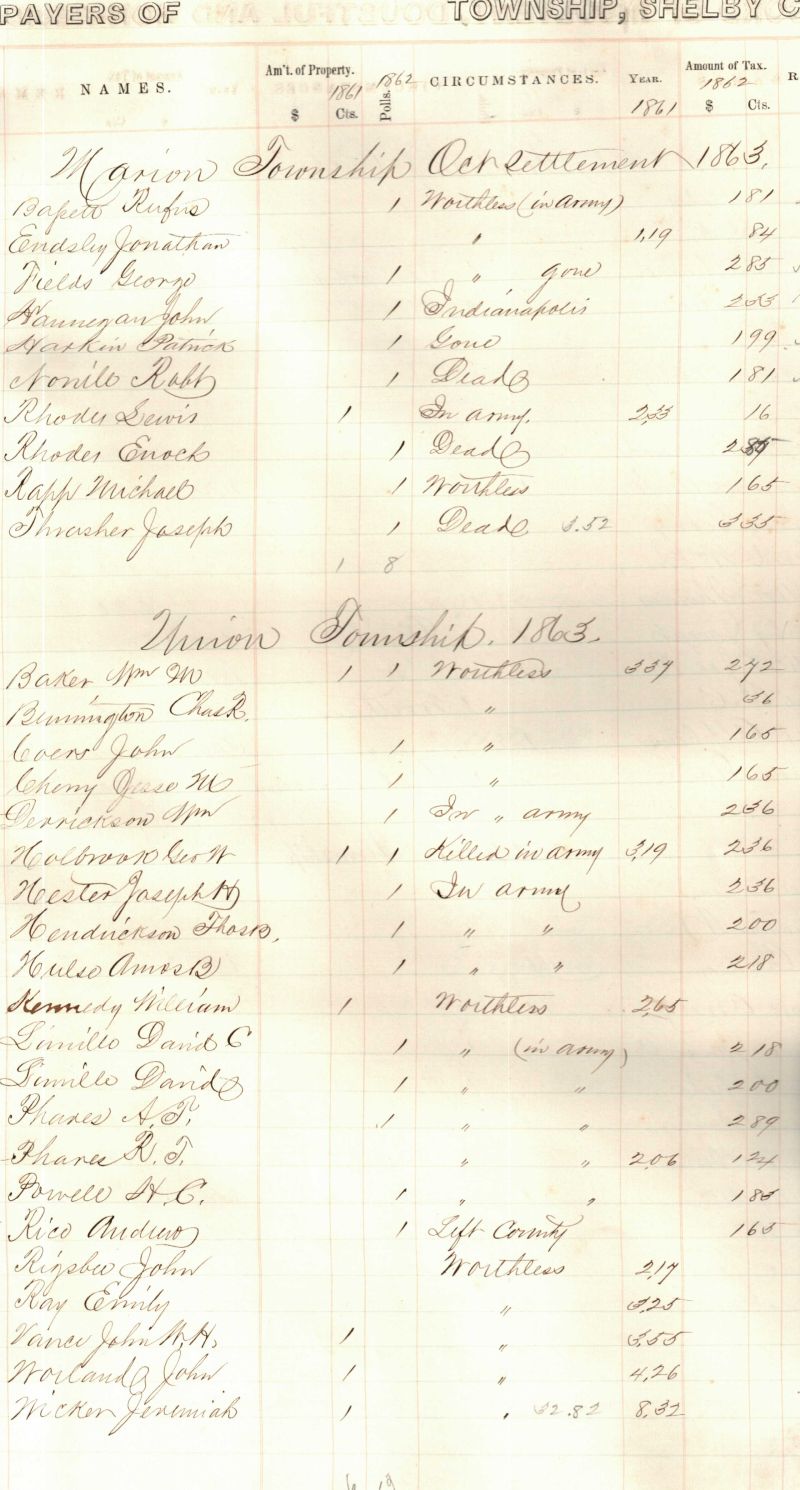 PAYERS OF TOWNSHIP, SHELBY C
NAMES. Am't. of Property. 1861 $ Cts. Polls. 1862 CIRCUMSTANCES. YEAR. 1861 Amount of Tax. 1862 $ Cts. R
Marion Township Oct Settlement 1863.
Bassett Rufus 1 Worthless (in army) 181
Endsley Jonathan " 1,19 84
Fields George 1 " gone 285
Hannegan John 1 Indianapolis 233
Harkin Patrick 1 Gone 199
Noville Robt 1 Dead 181
Rhodes Lewis 1 In army. 2,33 16
Rhodes Enoch 1 Dead
Rapp Michael 1 Worthless 165
Thrasher Joseph 1 Dead 3.52 335
1 8
Union Township. 1863.
Baker Wm M 1 1 Worthless 334 242
Bennington Chas R. " 36
Coers John 1 " 165
Cherry Jesse M 1 " 165
Derrickson Wm 1 In " army 236
Holbrook Geo W 1 1 Killed in army 3,19 236
Hester Joseph H 1 In army 236
Hendrickson Thos B. 1 " " 200
Hulse Amos B 1 " " 218
Kennedy William 1 Worthless 2,65
Limille David C 1 " (in army) 218
Limille David 1 " " 200
Phares A. T. 1 " " 289
Phares R. T. " " 2,06 124
Powell H. C. 1 " " 183
Rice Andrew 1 Left County 165
Rigsbee John Worthless 2,17
Ray Emily " 3,25
Vance John W. H. 1 " 3,55
Worland John 1 " 4,26
Wicker Jeremiah 1 " 32.82 8,32
6 19